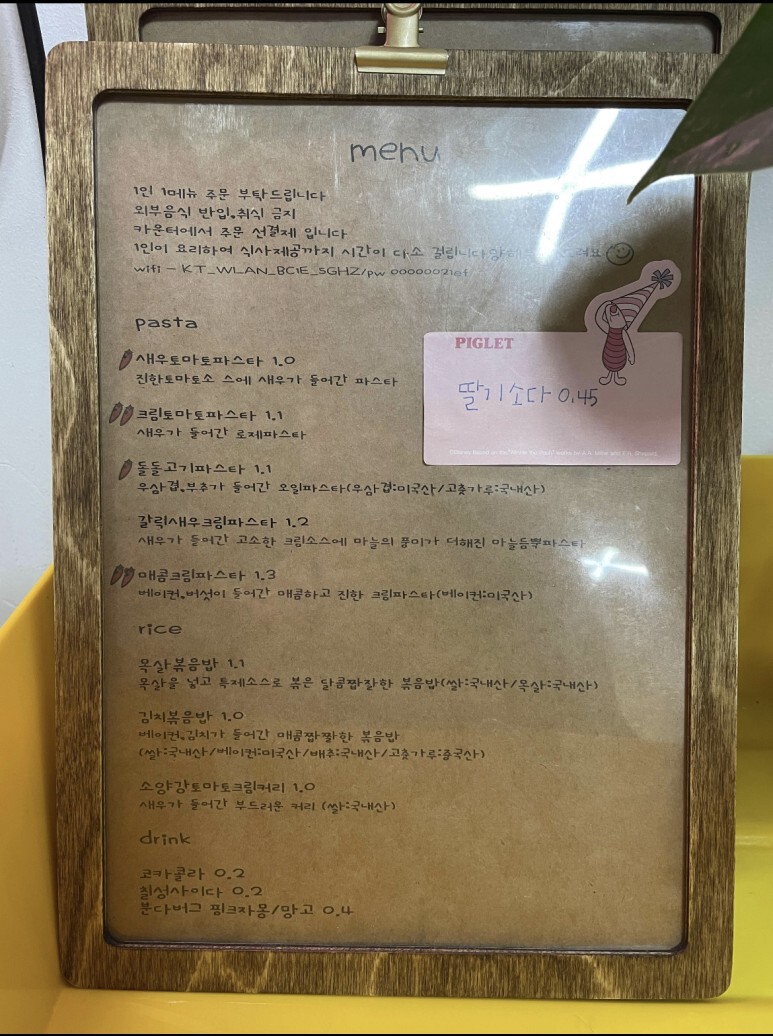 menu
1인 1메뉴 주문 부탁드립니다
외부음식 반입.취식 금지
카운터에서 주문 선결제 입니다
1인이 요리하여 식사제공까지 시간이 다소 걸립니다
wifi - KT_WLAN_BC1E_5GHZ/pw
pasta
새우토마토파스타 1.0
진한토마토소 스에 새우가 들어간 파스타
PIGLET
딸기소다 0.45
크림토마토파스타 1.1
새우가 들어간 로제파스타
돌돌고기파스타 1.1
우삼겹.부추가 들어간 오일파스타(우삼겹:미국산/고춧가루:국내산)
갈릭새우크림파스타 1.2
새우가 들어간 고소한 크림소스에 마늘의 풍미가 더해진 마늘듬뿍파스타
매콤크림파스타 1.3
베이컨.버섯이 들어간 매콤하고 진한 크림파스타(베이컨:미국산)
rice
목살볶음밥 1.1
목살을 넣고 특제소스로 볶은 달콤짭짤한 볶음밥(쌀:국내산/목살:국내산)
김치볶음밥 1.0
베이컨.김치가 들어간 매콤짭짤한 볶음밥
(쌀:국내산/베이컨:미국산/배추:국내산/고춧가루:중국산)
소양강토마토크림커리 1.0
새우가 들어간 부드러운 커리 (쌀:국내산)
drink
코카콜라 0.2
칠성사이다 0.2
분다버그 핑크자몽/망고 0.4